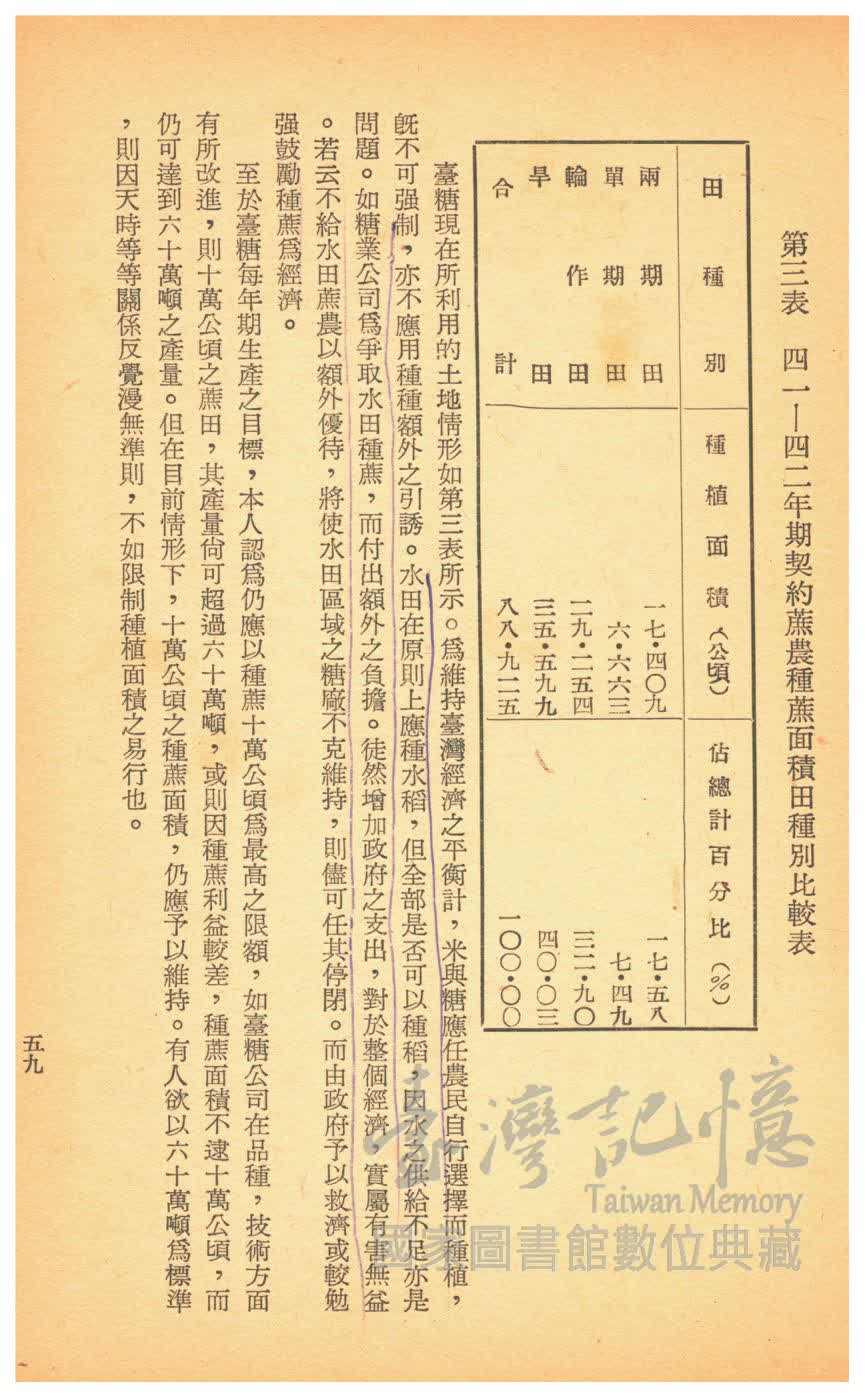 第三表　四一—四二年期契約蔗農種蔗面積田種別比較表
田種別　種植面積（公頃）　佔總計百分比（％）
兩期田　一七·四〇九　一七·五八
單期田　六·六六三　七·四九
輪作田　二九·二五四　三二·九〇
旱田　三五·五九九　四〇·〇三
合計　八八·九二五　一〇〇·〇〇
臺糖現在所利用的土地情形如第三表所示。爲維持臺灣經濟之平衡計，米與糖應任農民自行選擇而種植，
旣不可强制，亦不應用種種額外之引誘。水田在原則上應種水稻，但全部是否可以種稻，因水之供給不足亦是
問題。如糖業公司爲爭取水田種蔗，而付出額外之負擔。徒然增加政府之支出，對於整個經濟，實屬有害無益
。若云不給水田蔗農以額外優待，將使水田區域之糖廠不克維持，則儘可任其停閉。而由政府予以救濟或較勉
强鼓勵種蔗爲經濟。
至於臺糖每年期生產之目標，本人認爲仍應以種蔗十萬公頃爲最高之限額，如臺糖公司在品種，技術方面
有所改進，則十萬公頃之蔗田，其產量尙可超過六十萬噸，或則因種蔗利益較差，種蔗面積不逮十萬公頃，而
仍可達到六十萬噸之產量。但在目前情形下，十萬公頃之種蔗面積，仍應予以維持。有人欲以六十萬噸爲標準
，則因天時等等關係反覺漫無準則，不如限制種植面積之易行也。
五九
臺灣記憶
Taiwan Memory
國家圖書館數位典藏